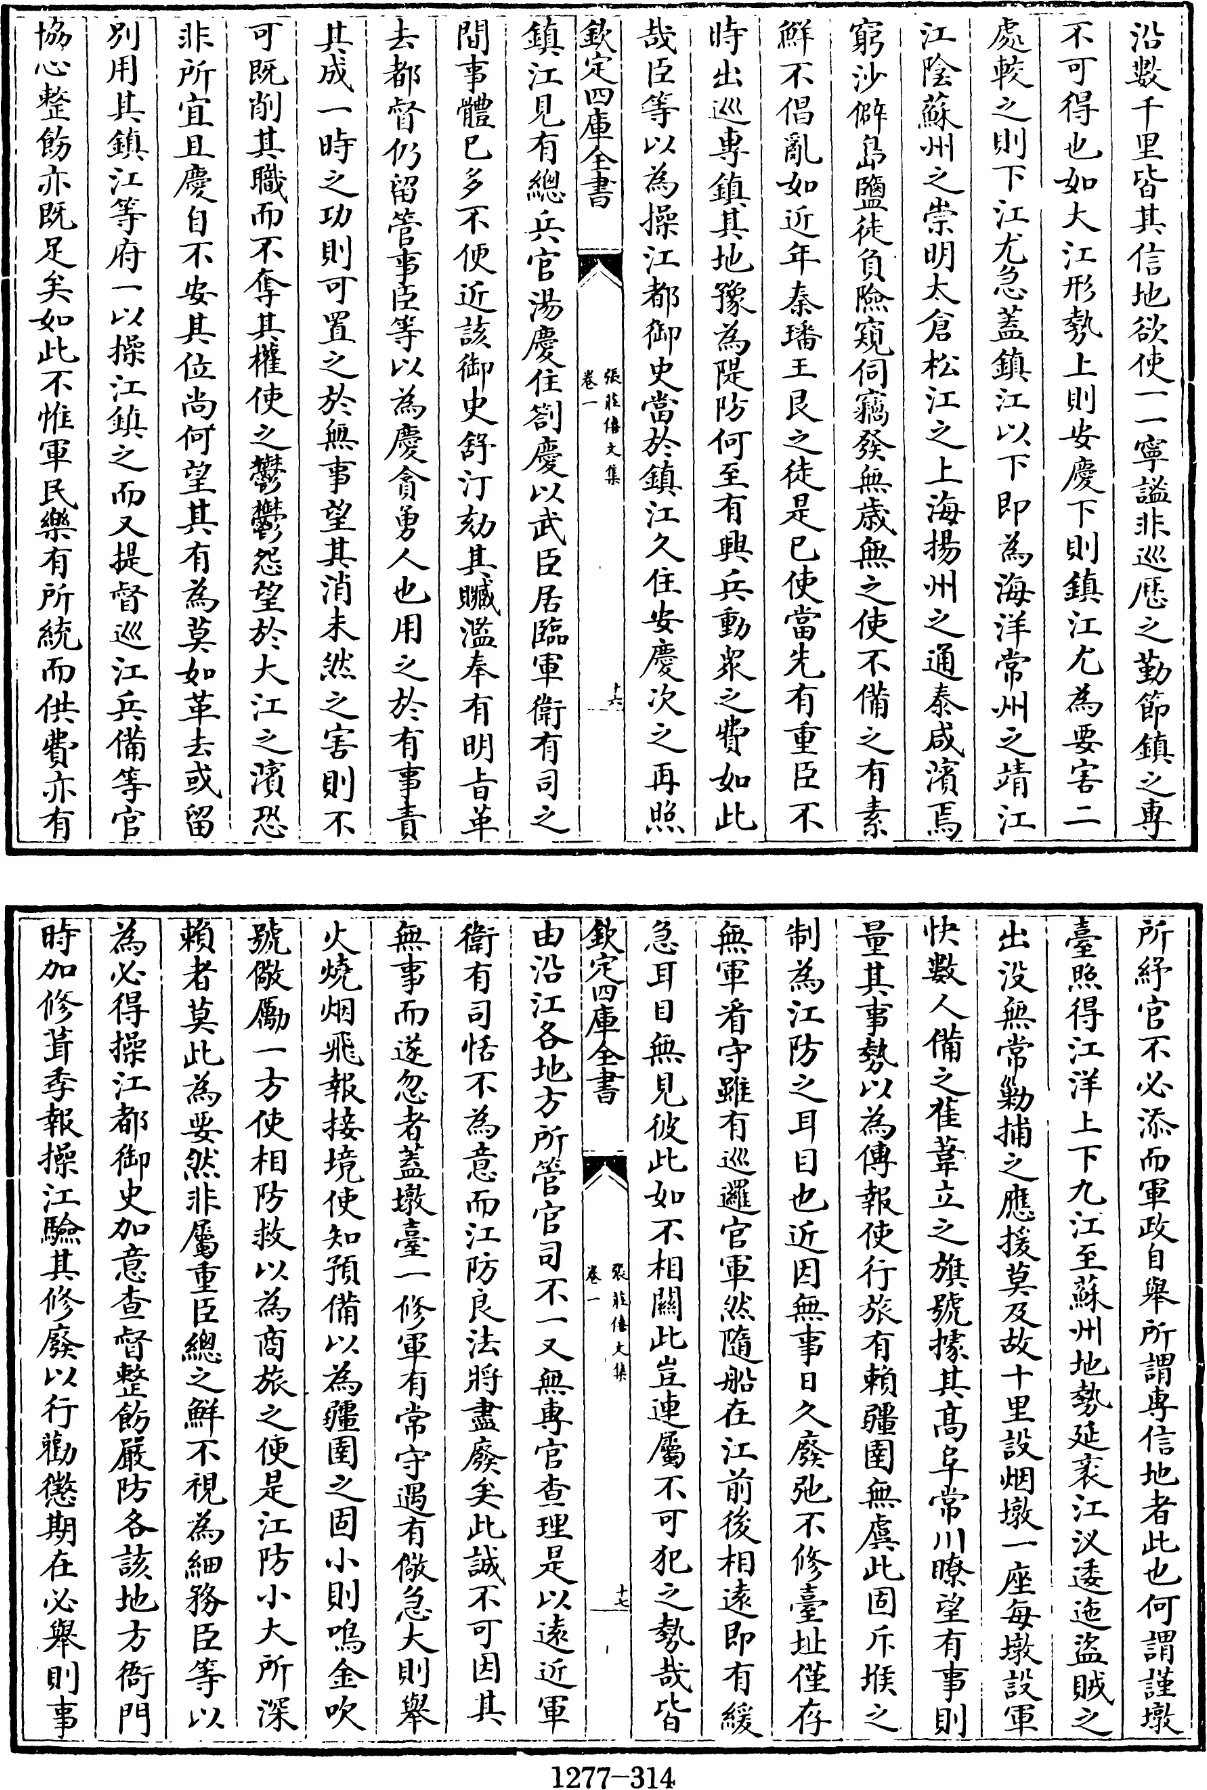 沿數千里皆其信地欲使一一寧謐非巡歷之勤節鎮之專
不可得也如大江形勢上則安慶下則鎮江尤為要害二
處較之則下江尤急蓋鎮江以下即為海洋常州之靖江
江陰蘇州之崇明太倉松江之上海揚州之通泰咸濱焉
窮沙僻島鹽徒負險窺伺竊發無歲無之使不備之有素
鮮不倡亂如近年秦璠王艮之徒是已使當先有重臣不
時出巡專鎮其地豫為隄防何至有興兵動眾之費如此
哉臣等以為操江都御史當於鎮江久住安慶次之再照
欽定四庫全書
張莊僖文集
卷一
十六
鎮江見有總兵官湯慶住劄慶以武臣居臨軍衛有司之
間事體已多不便近該御史舒汀劾其贓濫奉有明旨革
去都督仍留管事臣等以為慶貪勇人也用之於有事責
其成一時之功則可置之於無事望其消未然之害則不
可既削其職而不奪其權使之鬱鬱怨望於大江之濱恐
非所宜且慶自不安其位尚何望其有為莫如革去或留
別用其鎮江等府一以操江鎮之而又提督巡江兵備等官
協心整飭亦既足矣如此不惟軍民樂有所統而供費亦有
所紓官不必添而軍政自舉所謂專信地者此也何謂謹墩
臺照得江洋上下九江至蘇州地勢延袤江汊逶迤盜賊之
出没無常勦捕之應援莫及故十里設烟墩一座每墩設軍
快數人備之萑葦立之旗號據其高阜常川瞭望有事則
量其事勢以為傳報使行旅有賴疆圉無虞此固斥堠之
制為江防之耳目也近因無事日久廢弛不修臺址僅存
無軍看守雖有巡邏官軍然隨船在江前後相遠即有緩
急耳目無見彼此如不相關此豈連屬不可犯之勢哉皆
欽定四庫全書
張莊僖文集
卷一
十七
由沿江各地方所管官司不一又無專官查理是以遠近軍
衛有司恬不為意而江防良法將盡廢矣此誠不可因其
無事而遂忽者蓋墩臺一修軍有常守遇有儆急大則舉
火燒烟飛報接境使知預備以為疆圉之固小則鳴金吹
號儆勵一方使相防救以為商旅之便是江防小大所深
賴者莫此為要然非屬重臣總之鮮不視為細務臣等以
為必得操江都御史加意查督整飭嚴防各該地方衙門
時加修葺季報操江驗其修廢以行勸懲期在必舉則事
1277-314